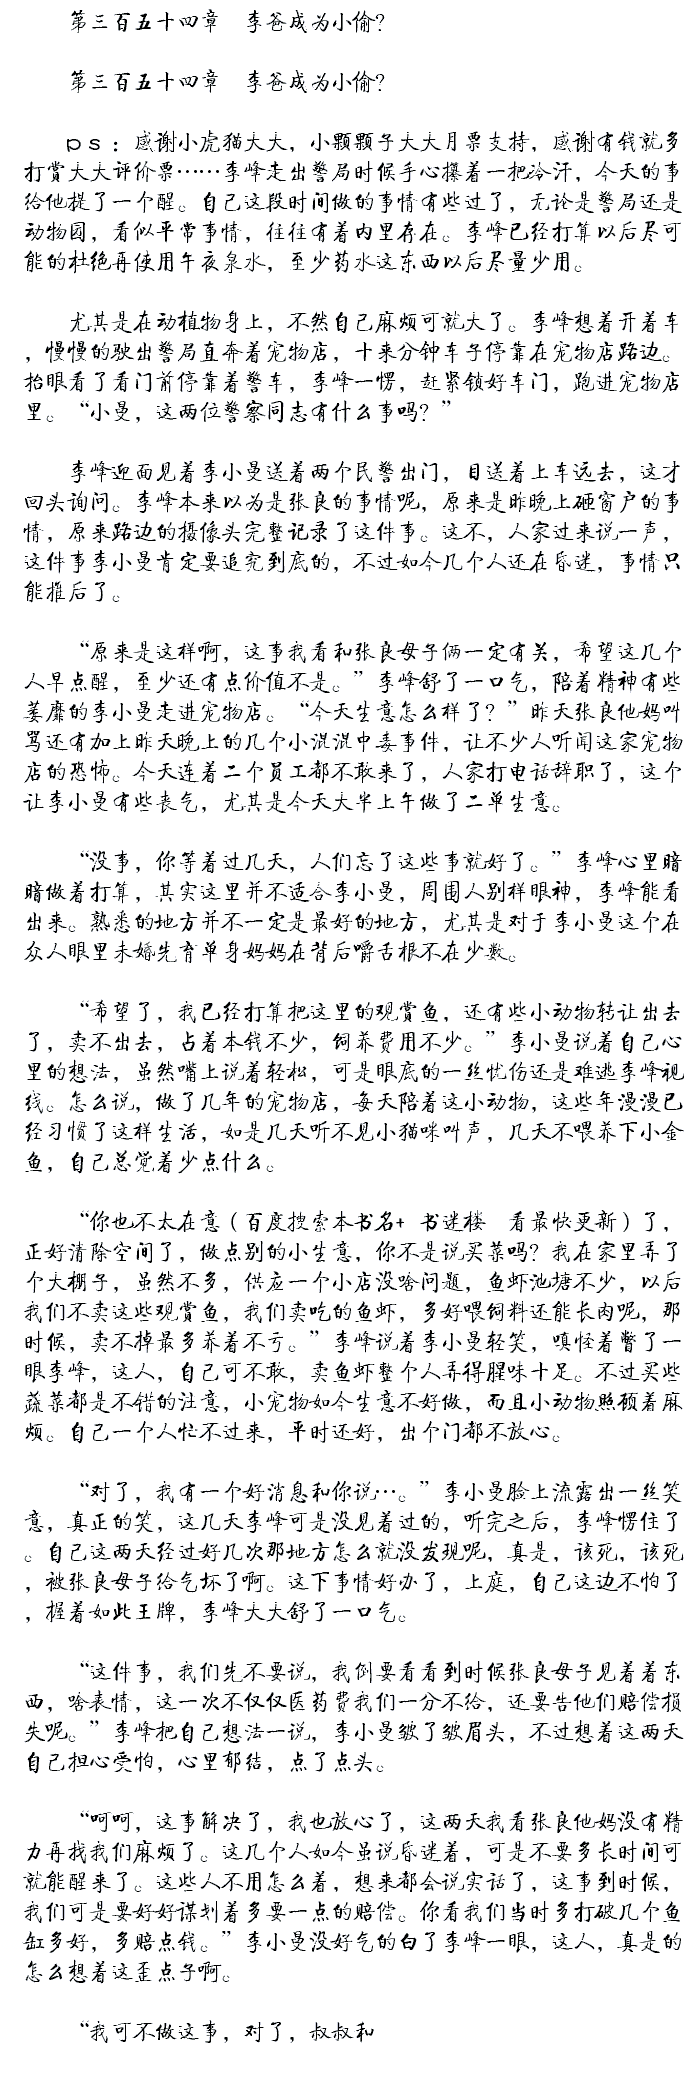 第三百五十四章　李爸成为小偷?
第三百五十四章　李爸成为小偷?
ｐｓ：感谢小虎猫大大，小颗颗子大大月票支持，感谢有钱就多
打赏大大评价票……李峰走出警局时候手心攥着一把冷汗，今天的事
给他提了一个醒。自己这段时间做的事情有些过了，无论是警局还是
动物园，看似平常事情，往往有着内里存在。李峰已经打算以后尽可
能的杜绝再使用午夜泉水，至少药水这东西以后尽量少用。
尤其是在动植物身上，不然自己麻烦可就大了。李峰想着开着车
，慢慢的驶出警局直奔着宠物店，十来分钟车子停靠在宠物店路边。
抬眼看了看门前停靠着警车，李峰一愣，赶紧锁好车门，跑进宠物店
里。“小曼，这两位警察同志有什么事吗？”
李峰迎面见着李小曼送着两个民警出门，目送着上车远去，这才
回头询问。李峰本来以为是张良的事情呢，原来是昨晚上砸窗户的事
情，原来路边的摄像头完整记录了这件事。这不，人家过来说一声，
这件事李小曼肯定要追究到底的，不过如今几个人还在昏迷，事情只
能推后了。
“原来是这样啊，这事我看和张良母子俩一定有关，希望这几个
人早点醒，至少还有点价值不是。”李峰舒了一口气，陪着精神有些
萎靡的李小曼走进宠物店。“今天生意怎么样了？”昨天张良他妈叫
骂还有加上昨天晚上的几个小混混中毒事件，让不少人听闻这家宠物
店的恐怖。今天连着二个员工都不敢来了，人家打电话辞职了，这个
让李小曼有些丧气，尤其是今天大半上午做了二单生意。
“没事，你等着过几天，人们忘了这些事就好了。”李峰心里暗
暗做着打算，其实这里并不适合李小曼，周围人别样眼神，李峰能看
出来。熟悉的地方并不一定是最好的地方，尤其是对于李小曼这个在
众人眼里未婚先育单身妈妈在背后嚼舌根不在少数。
“希望了，我已经打算把这里的观赏鱼，还有些小动物转让出去
了，卖不出去，占着本钱不少，饲养费用不少。”李小曼说着自己心
里的想法，虽然嘴上说着轻松，可是眼底的一丝忧伤还是难逃李峰视
线。怎么说，做了几年的宠物店，每天陪着这小动物，这些年漫漫已
经习惯了这样生活，如是几天听不见小猫咪叫声，几天不喂养下小金
鱼，自己总觉着少点什么。
“你也不太在意（百度搜索本书名+ 书迷楼　看最快更新）了，
正好清除空间了，做点别的小生意，你不是说买菜吗？我在家里弄了
个大棚子，虽然不多，供应一个小店没啥问题，鱼虾池塘不少，以后
我们不卖这些观赏鱼，我们卖吃的鱼虾，多好喂饲料还能长肉呢，那
时候，卖不掉最多养着不亏。”李峰说着李小曼轻笑，嗔怪着瞥了一
眼李峰，这人，自己可不敢，卖鱼虾整个人弄得腥味十足。不过买些
蔬菜都是不错的注意，小宠物如今生意不好做，而且小动物照顾着麻
烦。自己一个人忙不过来，平时还好，出个门都不放心。
“对了，我有一个好消息和你说…。”李小曼脸上流露出一丝笑
意，真正的笑，这几天李峰可是没见着过的，听完之后，李峰愣住了
。自己这两天经过好几次那地方怎么就没发现呢，真是，该死，该死
，被张良母子给气坏了啊。这下事情好办了，上庭，自己这边不怕了
，握着如此王牌，李峰大大舒了一口气。
“这件事，我们先不要说，我倒要看看到时候张良母子见着着东
西，啥表情，这一次不仅仅医药费我们一分不给，还要告他们赔偿损
失呢。”李峰把自己想法一说，李小曼皱了皱眉头，不过想着这两天
自己担心受怕，心里郁结，点了点头。
“呵呵，这事解决了，我也放心了，这两天我看张良他妈没有精
力再找我们麻烦了。这几个人如今虽说昏迷着，可是不要多长时间可
就能醒来了。这些人不用怎么着，想来都会说实话了，这事到时候，
我们可是要好好谋划着多要一点的赔偿。你看我们当时多打破几个鱼
缸多好，多赔点钱。”李小曼没好气的白了李峰一眼，这人，真是的
怎么想着这歪点子啊。
“我可不做这事，对了，叔叔和